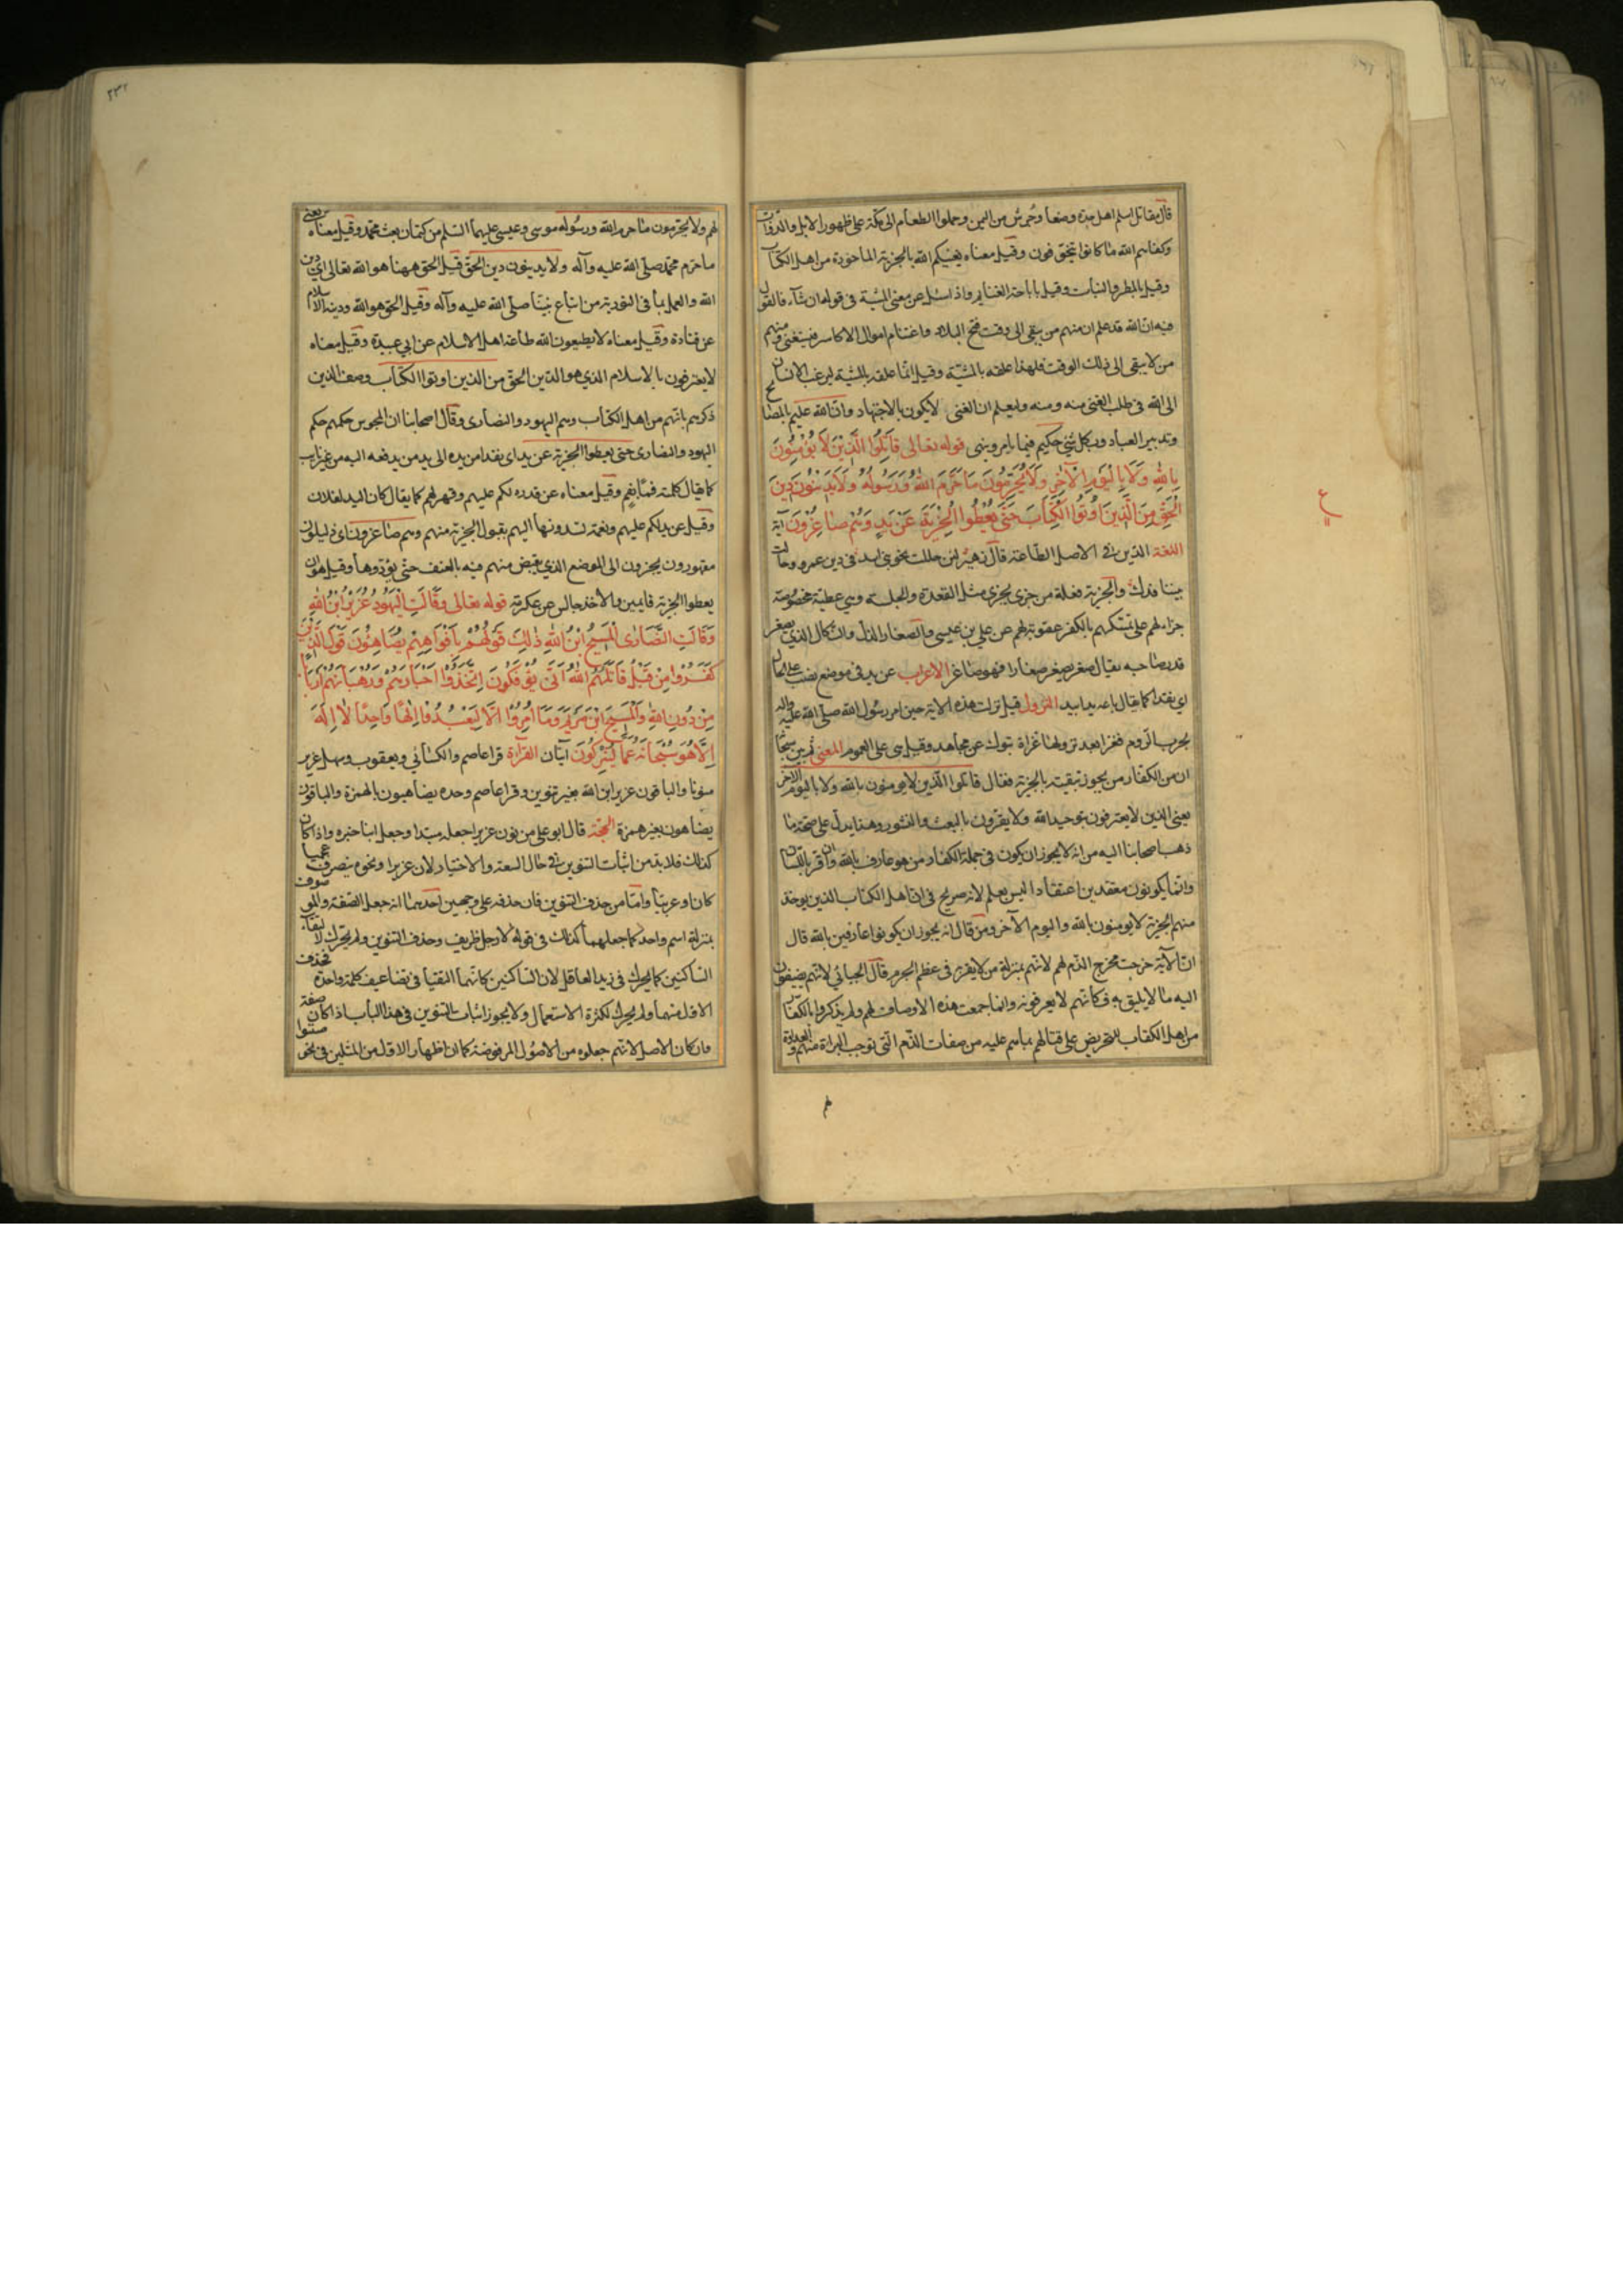 قال مقاتل اسلم اهل جدة وصنعا وجرش من اليمن وحملوا الطعام الى مكة على ظهور الابل والدواب
وكفاهم الله ما كانوا يتخوفون وقيل معناه يغنيكم الله بالجزية الماخوذة من اهل الكتاب
وقيل بالمطر والنبات وقيل باباحة الغنايم واذا سئل عن معنى المشية فى قوله ان شآء فالقول
فيه ان الله قد علم ان منهم من يبقى الى وقت فتح البلاد واغتنام اموال الاكاسر فيستغنى ومنهم
من لا يبقى الى ذلك الوقت فلهذا علقه بالمشية وقيل انما علقه بالمشية ليرغب الانسان
الى الله فى طلب الغنى منه وليعلم ان الغنى لا يكون بالاجتهاد وان الله عليم بالمصالح
وتدبير العباد وبكل شئ حكيم فيما يامر وينهى قوله تعالى قَاتِلُوا الَّذِيْنَ لَا يُؤْمِنُونَ
بِاللهِ وَلَا بِالْيَومِ الْآخِرِ وَلَا يُحَرِّمُونَ مَا حَرَّمَ اللهُ وَرَسُولُهُ وَلَا يَدِينُونَ دِينَ
الْحَقِّ مِنَ الَّذِينَ اُوتُوا الْكِتَابَ حَتّى يُعْطُوا الْجِزْيَةَ عَنْ يَدٍ وَهُمْ صَاغِرُونَ آية
اللغة الدين فى الاصل الطاعة قال زهير لئن حللت بجو فى بنى اسد فى دين عمرو وحالت
بيننا فدك والجزية فعلة من جزى يجزى مثل القعدة والجلسة وهى عطية مخصوصة
جزاء لهم على تمسكهم بالكفر عقوبة لهم عن علي بن عيسى والصغار الذل والنكال الذي يصغر
قدر صاحبه يقال صغر يصغر صغارا فهو صاغر الاعراب عن يد فى موضع نصب على الحال
اي نقدا كما يقال باعه يدا بيد النزول قيل نزلت هذه الاية حين امر رسول الله صلى الله عليه وآله
بحرب الروم فغزا بعد نزولها غزاة تبوك عن مجاهد وقيل هى على العموم المعنى ثم بين سبحانه
ان من الكفار من يجوز تبقيته بالجزية فقال قاتلوا الذين لا يومنون بالله ولا باليوم الآخر
يعنى الذين لا يعترفون بتوحيد الله ولا يقرون بالبعث والنشور وهذا يدل على صحة ما
ذهب اصحابنا اليه من انه لا يجوز ان يكون فى جملة الكفار من هو عارف بالله وان اقر باللسان
وانما يكونون معتقدين اعتقادا ليس بعلم لانه صريح فى ان اهل الكتاب الذين يوخذ
منهم الجزية لا يومنون بالله واليوم الآخر ومن قال انه يجوز ان يكونوا عارفين بالله قال
ان الآية خرجت مخرج الذم لهم لانهم بمنزلة من لا يقر به فى عظم الجرم قال الجبائي لانهم يضيفون
اليه ما لا يليق به فكانهم لا يعرفونه وانما جمعت هذه الاوصاف لهم ولم يذكروا بالكفار
من اهل الكتاب للتحريض على قتالهم بما هم عليه من صفات الذم التى توجب البراءة منهم والعداوة
لهم
لهم ولا يحرمون ما حرم الله ورسوله موسى وعيسى عليهما السلم من كتمان بعث محمد وقيل معناه يعنى
ما حرم محمد صلى الله عليه وآله ولا يدينون دين الحق قيل الحق ههنا هو الله تعالى اي دين
الله والعمل بما فى التورية من اتباع نبينا صلى الله عليه وآله وقيل الحق هو الله ودينه الاسلام
عن قتادة وقيل معناه لا يطيعون الله طاعة اهل الاسلام عن ابي عبيدة وقيل معناه
لا يعترفون بالاسلام الذي هو الدين الحق من الذين اوتوا الكتاب وصف الذين
ذكرهم بانهم من اهل الكتاب وهم اليهود والنصارى وقال اصحابنا ان المجوس حكمهم حكم
اليهود والنصارى حتى يعطوا الجزية عن يد اى نقدا من يده الى يد من يدفعه اليه من غير نايب
كما يقال كلمته فما بفم وقيل معناه عن قدرة لكم عليهم وقهر لهم كما يقال كان اليد لفلان
وقيل عن يد لكم عليهم ونعمة تسدونها اليهم بقبول الجزية منهم وهم صاغرون اى ذليلون
مقهورون يجرون الى الموضع الذي يقبض منهم فيه بالعنف حتى يؤدوها وقيل هو ان
يعطوا الجزية قايمين والآخذ جالس عن عكرمة قوله تعالى وَقَالَتِ الْيَهُودُ عُزَيْرٌ ابْنُ اللهِ
وَقَالَتِ النَّصَارٰى الْمَسِيحُ ابْنُ اللهِ ذٰلِكَ قَوْلُهُمْ بِاَفْوَاهِهِمْ يُضَاهِئُونَ قَوْلَ الَّذِينَ
كَفَرُوا مِنْ قَبْلُ قَاتَلَهُمُ اللهُ اَنّى يُؤْفَكُونَ اِتَّخَذُوْا اَحْبَارَهُمْ وَرُهْبَانَهُمْ اَرْبَابًا
مِنْ دُونِ اللهِ وَالْمَسِيحَ ابْنَ مَرْيَمَ وَمَا اُمِرُوْا اِلَّا لِيَعْبُدُوا اِلٰهًا وَاحِدًا لَا اِلٰهَ
اِلَّا هُوَ سُبْحَانَهُ عَمَّا يُشْرِكُونَ آيتان القراءة قرا عاصم والكسائي ويعقوب وسهل عزير
منونا والباقون عزير ابن الله بغير تنوين وقرا عاصم وحده يضاهئون بالهمزة والباقون
يضاهون بغير همزة الحجة قال ابو علي من نون عزيرا جعله مبتدا وجعل ابنا خبره واذا كان
كذلك فلا بد من اثبات التنوين فى حال السعة والاختيار لان عزيرا ونحوه ينصرف عجميا
كان او عربيا واما من حذف التنوين فان حذفه على وجهين احدهما انه جعل الصفة والموصوف
بمنزلة اسم واحد كما جعلهما كذلك فى قوله لا رجل ظريف وحذف التنوين ولم يحرك لالتقاء
الساكنين كما يحرك فى زيد العاقل لان الساكنين كانهما التقيا فى تضاعيف كلمة واحدة فحذف
الاول منهما ولم يحرك لكثرة الاستعمال ولا يجوز اثبات التنوين فى هذا الباب اذا كان صفة
وان كان الاصل لانهم جعلوه من الاصول المرفوضة كما ان اظهار الاول من المثلين فى نحو ضننوا